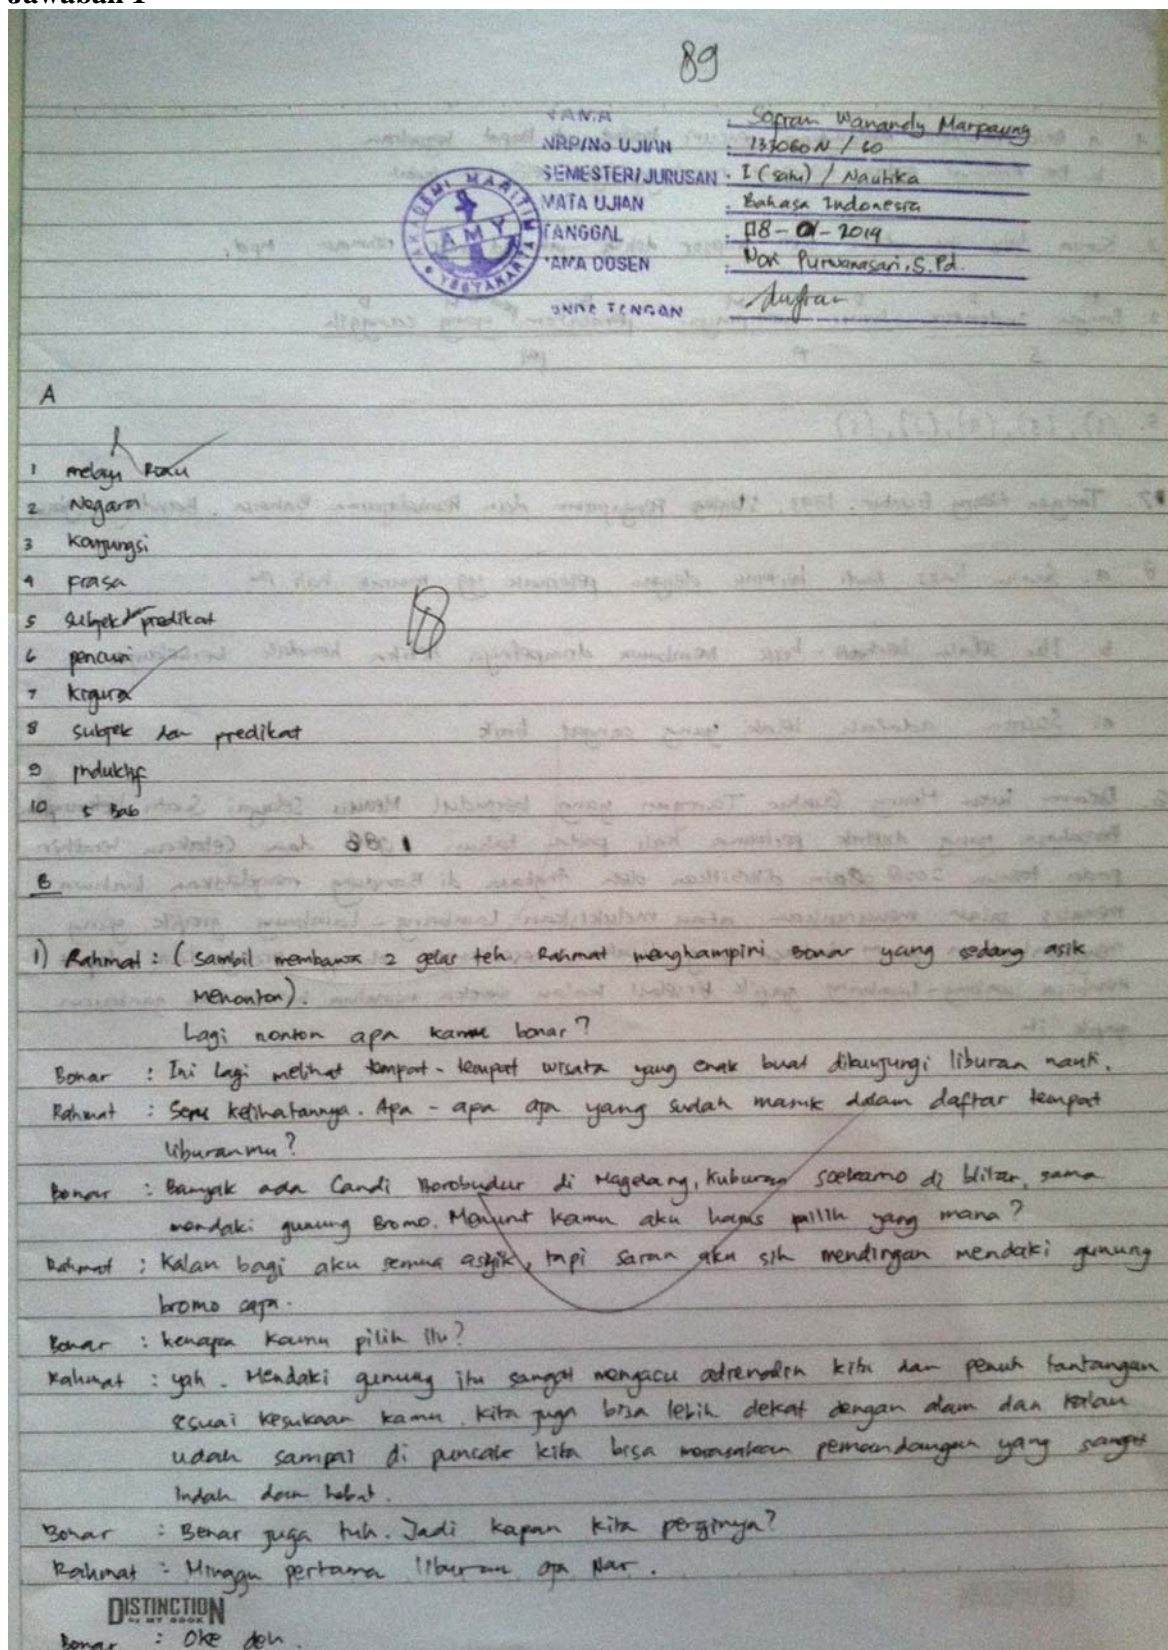 Jawaban 1
89
NAMA : Sopran Wanandy Marpaung
NRP/No UJIAN : 133060 N / 60
SEMESTER/JURUSAN : I (satu) / Nautika
MATA UJIAN : Bahasa Indonesia
TANGGAL : 08 - 01 - 2014
NAMA DOSEN : Nok Purwanasari, S.Pd.
TANDA TANGAN
AKADEMI MARITIM
AMY
YOGYAKARTA
A
1 melayu Riau
2 Negara
3 Konjungsi
4 Frasa
5 Subjek dan predikat
6 pencuri
7 kigura
8 subjek dan predikat
9 induktif
10 5 Bab
18
B
1) Rahmat : ( sambil membawa 2 gelas teh, Rahmat menghampiri Bonar yang sedang asik
menonton).
Lagi nonton apa kamu bonar ?
Bonar : Ini lagi melihat tempat - tempat wisata yang enak buat dikunjungi liburan nanti.
Rahmat : Seru kelihatannya. Apa - apa aja yang sudah masuk dalam daftar tempat
liburanmu ?
Bonar : Banyak ada Candi Borobudur di Magelang, Kuburan Soekarno di blitar, sama
mendaki gunung Bromo. Menurut kamu aku harus pilih yang mana ?
Rahmat : Kalau bagi aku semua asyik, tapi saran aku sih mendingan mendaki gunung
bromo saja.
Bonar : kenapa kamu pilih itu ?
Rahmat : yah. Mendaki gunung itu sangat mengacu adrenalin kita dan penuh tantangan
sesuai kesukaan kamu. kita juga bisa lebih dekat dengan alam dan kalau
udah sampai di puncak kita bisa merasakan pemandangan yang sangat
indah dan hebat.
Bonar : Benar juga tuh. Jadi kapan kita perginya ?
Rahmat : Minggu pertama liburan aja Nar.
DISTINCTION
Bonar : Oke deh.